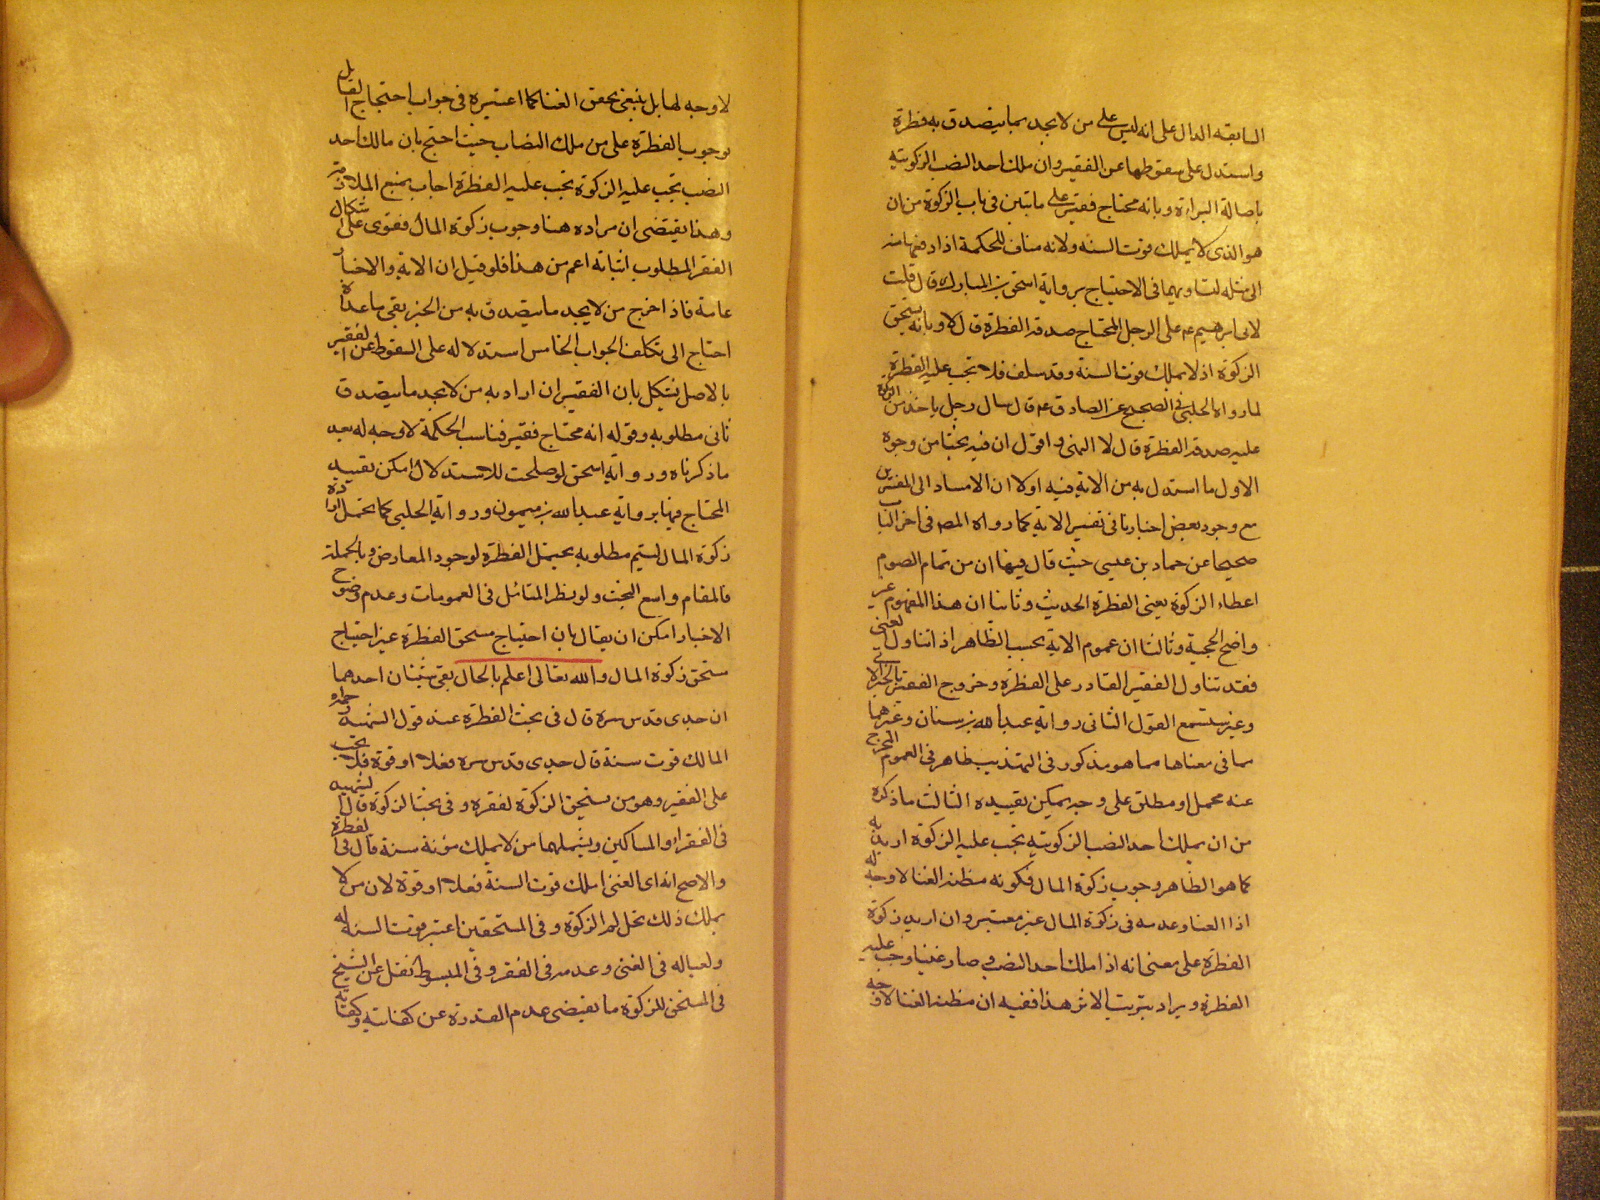 السابقه الدال على انه ليس على من لا يجد بما يتصدق به فطرة
واستدل على سقوطها عن الفقير وان ملك احد النصب الزكويته
باصالة البراءة وبانه محتاج فقير على ما تبين في باب الزكوة من ان
هو الذي لا يملك قوت السنه ولانه مناف للحكمة اذ اد منها منه
الى مثله لتساويهما في الاحتياج برواية اسحق بن المبارك قال قلت
لابى ابرهيم ع على الرجل المحتاج صدقة الفطرة قال لا وبانه يستحق
الزكوة اذ لا يملك قوت السنة وقد سلف فلا تجب عليه الفطرة
لما رواه الحلبي في الصحيح عن الصادق ع قال سال رجل ياخذ من الزكوة
عليه صدقة الفطرة قال لا انتهى واقول ان فيه بحثا من وجوه
الاول ما استدل به من الاية فيه اولا ان الاسناد الى المفسرين
مع وجود بعض اخبارنا في تفسير الاية كما رواه المصه في اخر الباب
صحيحا عن حماد بن عيسى حيث قال فيها ان من تمام الصوم
اعطاء الزكوة يعنى الفطرة الحديث وثانيا ان هذا المفهوم غير
واضح الحجية وثالثا ان عموم الاية بحسب الظاهر اذا تناول لغنى
فقد تناول الفقير القادر على الفطرة وخروج الفقير بالخبر الاتي
وغيره ستسمع القول الثانى رواية عبدالله بن سنان وغيرهما
بما في معناها مما هو مذكور في التهذيب ظاهر في العموم المخرج
عنه محمل او مطلق على وجه يمكن تقييده الثالث ما ذكره
من ان يملك احد النصب الزكويته تجب عليه الزكوة اريد به
كما هو الظاهر وجوب زكوة المال فكونه مظنه الغنا لا وجه له
اذا الغنا وعدمه في زكوة المال غير معتبر وان اريد زكوة
الفطرة على معنى انه اذا ملك احد النصب وصار غنيا وجب عليه
الفطرة ويراد بترتيب الاثر هذا ففيه ان مظنه الغنا لا وجه
لا وجه لها بل ينبغى تحقق الغنا كما اعتبره في جواب احتجاج القايل
بوجوب الفطرة على من ملك النصاب حيث احتج بان مالك احد
النصب تجب عليه الزكوة تجب عليه الفطرة اجاب بمنع الملازمة
وهذا يقتضى ان مراده هنا وجوب زكوة المال فقوى على اشكال
الفقر المطلوب اثباته اعم من هذا فلو قيل ان الاية والاخبار
عامة فاذا خرج من لا يجد ما يتصدق به من الخبر بقى ما عداه
احتاج الى تكلف الجواب الخامس استدلاله على السقوط عن الفقير
بالاصل يشكل بان الفقير ان اراد به من لا يجد ما يتصدق
ثانى مطلوبه وقوله انه محتاج فقير فناسب الحكمة لا وجه له بعد
ما ذكرناه ورواية اسحق لو صلحت للاستدلال امكن تقييد
المحتاج فيها برواية عبدالله بن ميمون ورواية الحلبي كما تحتمل ارادة
زكوة المال ليتم مطلوبه تحتمل الفطرة لوجود المعارض وبالجملة
فالمقام واسع البحث ولو نظر المتامل في العمومات وعدم وضوح
الاخبار امكن ان يقال بان احتياج مستحق الفطرة غير احتياج
مستحق زكوة المال والله تعالى اعلم بالحال بقى شيئان احدهما
ان جدى قدس سره قال في بحث الفطرة عند قول الشهيد رحمه
المالك قوت سنة قال جدى قدس سره فعلا او قوة فلا تجب
على الفقير وهو من يستحق الزكوة لفقره وفي بحث الزكوة قال الشهيد
في الفقراء والمساكين ويشملهما من لا يملك مؤنة سنة قال في الفطرة
والاصح انه اى الغنى املك قوت السنة فعلا او قوة لان من لا
يملك ذلك تحل له الزكوة وفي المستحقين اعتبر قوت السنة له
ولعياله في الغنى وعدمه في الفقر وفي المبسوط نقل عن الشيخ
في المستحق للزكوة ما يقتضى عدم القدرة عن كفايته وكفاية